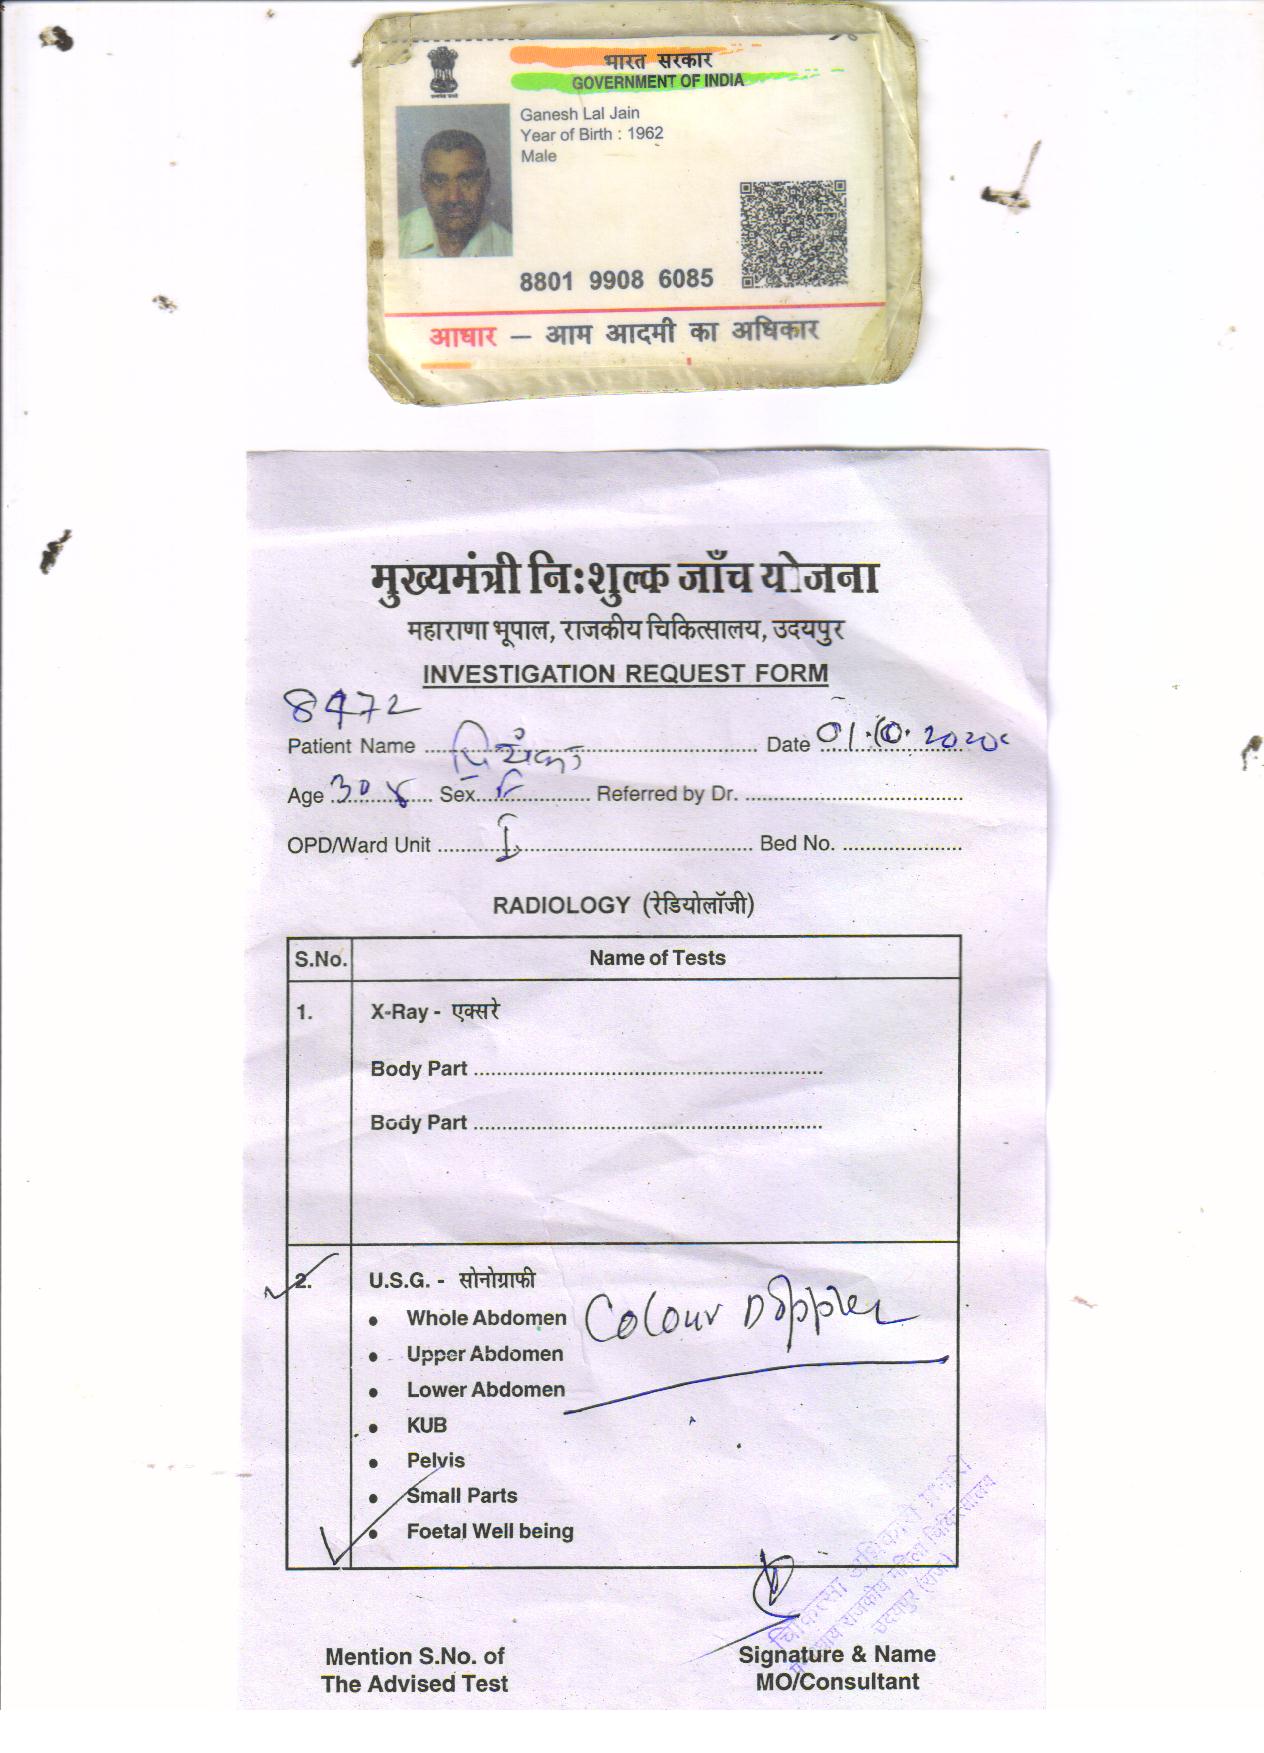 भारत सरकार
GOVERNMENT OF INDIA
Ganesh Lal Jain
Year of Birth : 1962
Male
8801 9908 6085
आधार – आम आदमी का अधिकार
मुख्यमंत्री नि:शुल्क जाँच योजना
महाराणा भूपाल, राजकीय चिकित्सालय, उदयपुर
INVESTIGATION REQUEST FORM
8472
Patient Name प्रियंका Date 01.10.2020
Age 30 Sex F Referred by Dr.
OPD/Ward Unit I Bed No.
RADIOLOGY (रेडियोलॉजी)
S.No. Name of Tests
1. X-Ray - एक्सरे
Body Part
Body Part
2. U.S.G. - सोनोग्राफी
• Whole Abdomen Colour Doppler
• Upper Abdomen
• Lower Abdomen
• KUB
• Pelvis
• Small Parts
• Foetal Well being
चिकित्सा अधिकारी प्रभारी
राजकीय महिला चिकित्सालय
उदयपुर (राज.)
Mention S.No. of Signature & Name
The Advised Test MO/Consultant